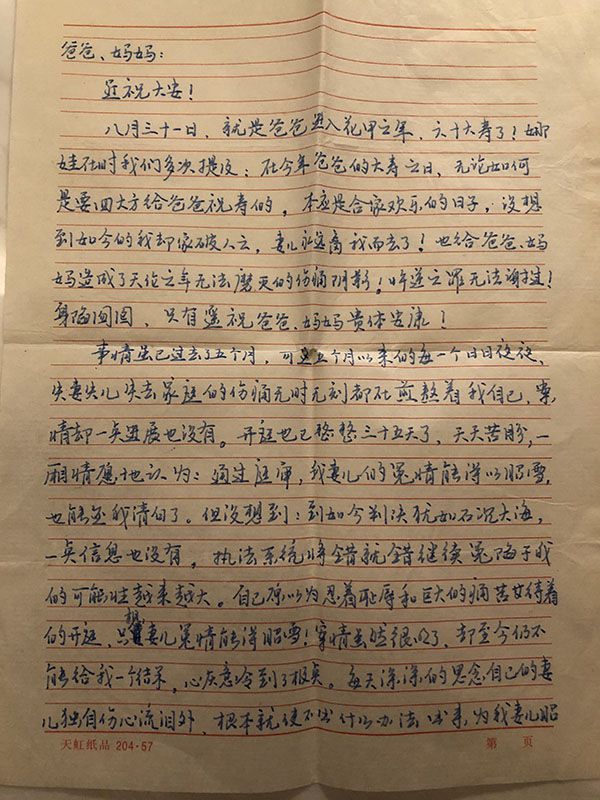 爸爸、妈妈：
遥祝大安！
八月三十一日，就是爸爸进入花甲之年，六十大寿了！娜
娃在时我们多次提及：在今年爸爸的大寿之日，无论如何
是要四大方给爸爸祝寿的，本应是合家欢乐的日子，没想
到如今的我却家破人亡，妻儿永远离我而去了！也给爸爸、妈
妈造成了天伦之年无法磨灭的伤痛阴影！忤逆之罪无法谢挂！
身陷囹圄，只有遥祝爸爸、妈妈贵体安康！
事情虽已过去了五个月，可这五个月以来的每一个日日夜夜、
失妻失儿失去家庭的伤痛无时无刻都在煎熬着我自己，案
情却一点进展也没有。开庭也已整整三十五天了，天天苦盼，一
厢情愿地认为：通过庭审，我妻儿的冤情能得以昭雪，
也能还我清白了。但没想到：到如今判决犹如石沉大海，
一点信息也没有，执法系统将错就错继续冤陷于我
的可能性越来越大。自己原以为忍着耻辱和巨大的痛苦等待着
的开庭，只想妻儿冤情能得昭雪！案情虽然很明了，却至今仍不
能给我一个结果，心灰意冷到了极点。每天深深的思念自己的妻
儿独自伤心流泪外，根本就使不出什么办法出来，为我妻儿昭
天虹纸品 204-57
第 页